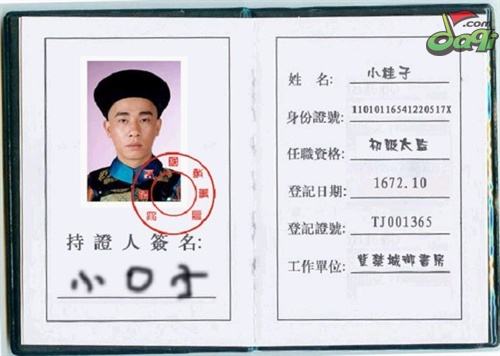 daqi.com
持證人簽名:
小口子
姓 名: 小桂子
身份證號: 11010116541220517X
任職資格: 初級太監
登記日期: 1672.10
登記證號: TJ001365
工作單位: 紫禁城御書房